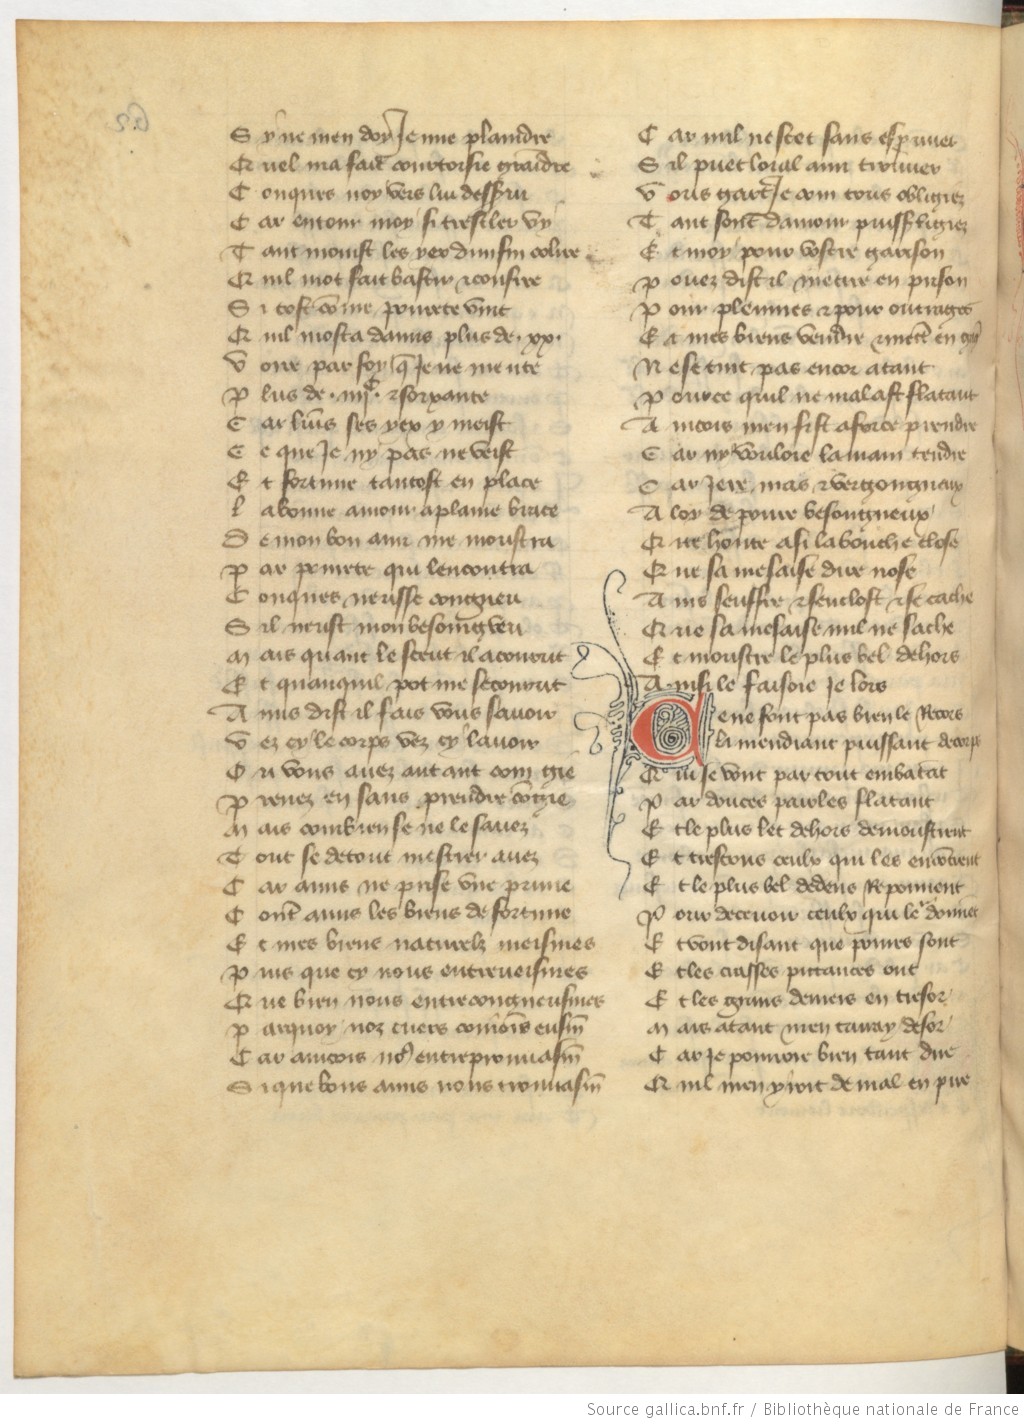 S y ne men doy Je mie plaindre
Q uel ma fait courtoisie graindre
C onques noy vers lui desseruı
C ar entour moy si tresclerˍ vy
T ant mouist les yex dun fin colire
Q uil mot fait bastir ⁊ confire
S i tost cōme pourete vint
Q uil mosta damis plus de · xx ·
V oire par foy q̄ Je ne mente
P lus de · iiijᶜ · ⁊ soixante
C ar lins ses yex y meist
C e que Je ny pas ne veist
E t fortune tantost en place
L a bonne amour a plaine brace
D e mon bon ami me monstra
P ar pourete qui lencontra
C onques neusse congneu
S il neust mon besoing veu
M ais quant le sceut il acourut
E t quanquil pot me secourut
A mis dist il fais vous sauoir
V ez cy le corps vez cy lauoir
O u vous auez autant com gie
P renez en sans prendre cōgie
M ais combien se ne le sauez
T out se de tout mestier auez
C ar amis ne prise vne prune
C ont amis les biens de fortune
E t mes biens naturelz meismes
P uis que cy nous entreueismes
Q ue bien nous entrecongneusmes
P arquoy noz cuers cōioīs eusm̄
C ar aincois no9 entreprouuasm̄
S i que bons amis nous trouuasm̄
C ar nul ne scet sans esprouuer
S il puet loial ami trouuer
V ous gart Je com tous obligiez
T ant sont damour puiss ligiez
E t moy pour vostre garison
P ouez dist il mettre en prison
P our pleuues ⁊ pour outrages
E t mes biens vendre ⁊ mect̄ en
N e se tint pas encor atant
P our ce quil ne malast flatant
A incois men fist a force prendre
C ar ny vouloie la main tendre
C ar Jere mas ⁊ vergongneux
A loy de poure besongneux
Q ue honte a si la bouche close
Q ue sa mesaise dire nose
A ins seuffre ⁊ senclost ⁊ se cache
Q ue sa mesaise nul ne sache
E t monstre le plus bel dehors
A insi le faisoie Je lors
Ce ne font pas bien le Recors
li mendiant puissant de corps
Q ui se vont par tout embatāt
P ar douces paroles flatant
E t le plus let dehors demonstrent
E t trestous ceulx qui les encōtrent
E t le plus bel dedens Reponnent
P our deceuoir ceulx qui le donnēt
E t vont disant que poures sont
E t les crasses pittances ont
E t les grans deniers en tresor
M ais atant men tairay desor
C ar Je pourroie bien tant dire
Q uil men yroit de mal en pire
Source gallica.bnf.fr / Bibliothèque nationale de France